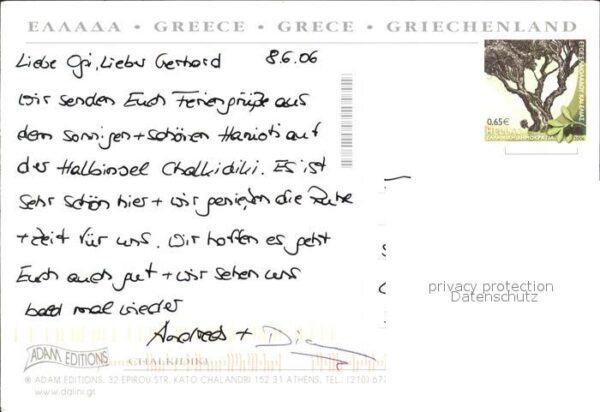 ΕΛΛΑΔΑ • GREECE • GRECE • GRIECHENLAND
Liebe Gi, Lieber Gerhard 8.6.06
Wir senden Euch Feriengrüße aus
dem sonnigen + schönen Hanioti auf
der Halbinsel Chalkidiki. Es ist
sehr schön hier + wir genießen die Ruhe
+ Zeit für uns. Wir hoffen es geht
Euch auch gut + wir sehen uns
bald mal wieder
Andreas +
0.65€
HELLAS
privacy protection
Datenschutz
ADAM EDITIONS
CHALKIDIKI
® ADAM EDITIONS, 32 EPIROU STR. KATO CHALANDRI 152 31 ATHENS, TEL. (210) 677
www.dalini.gr